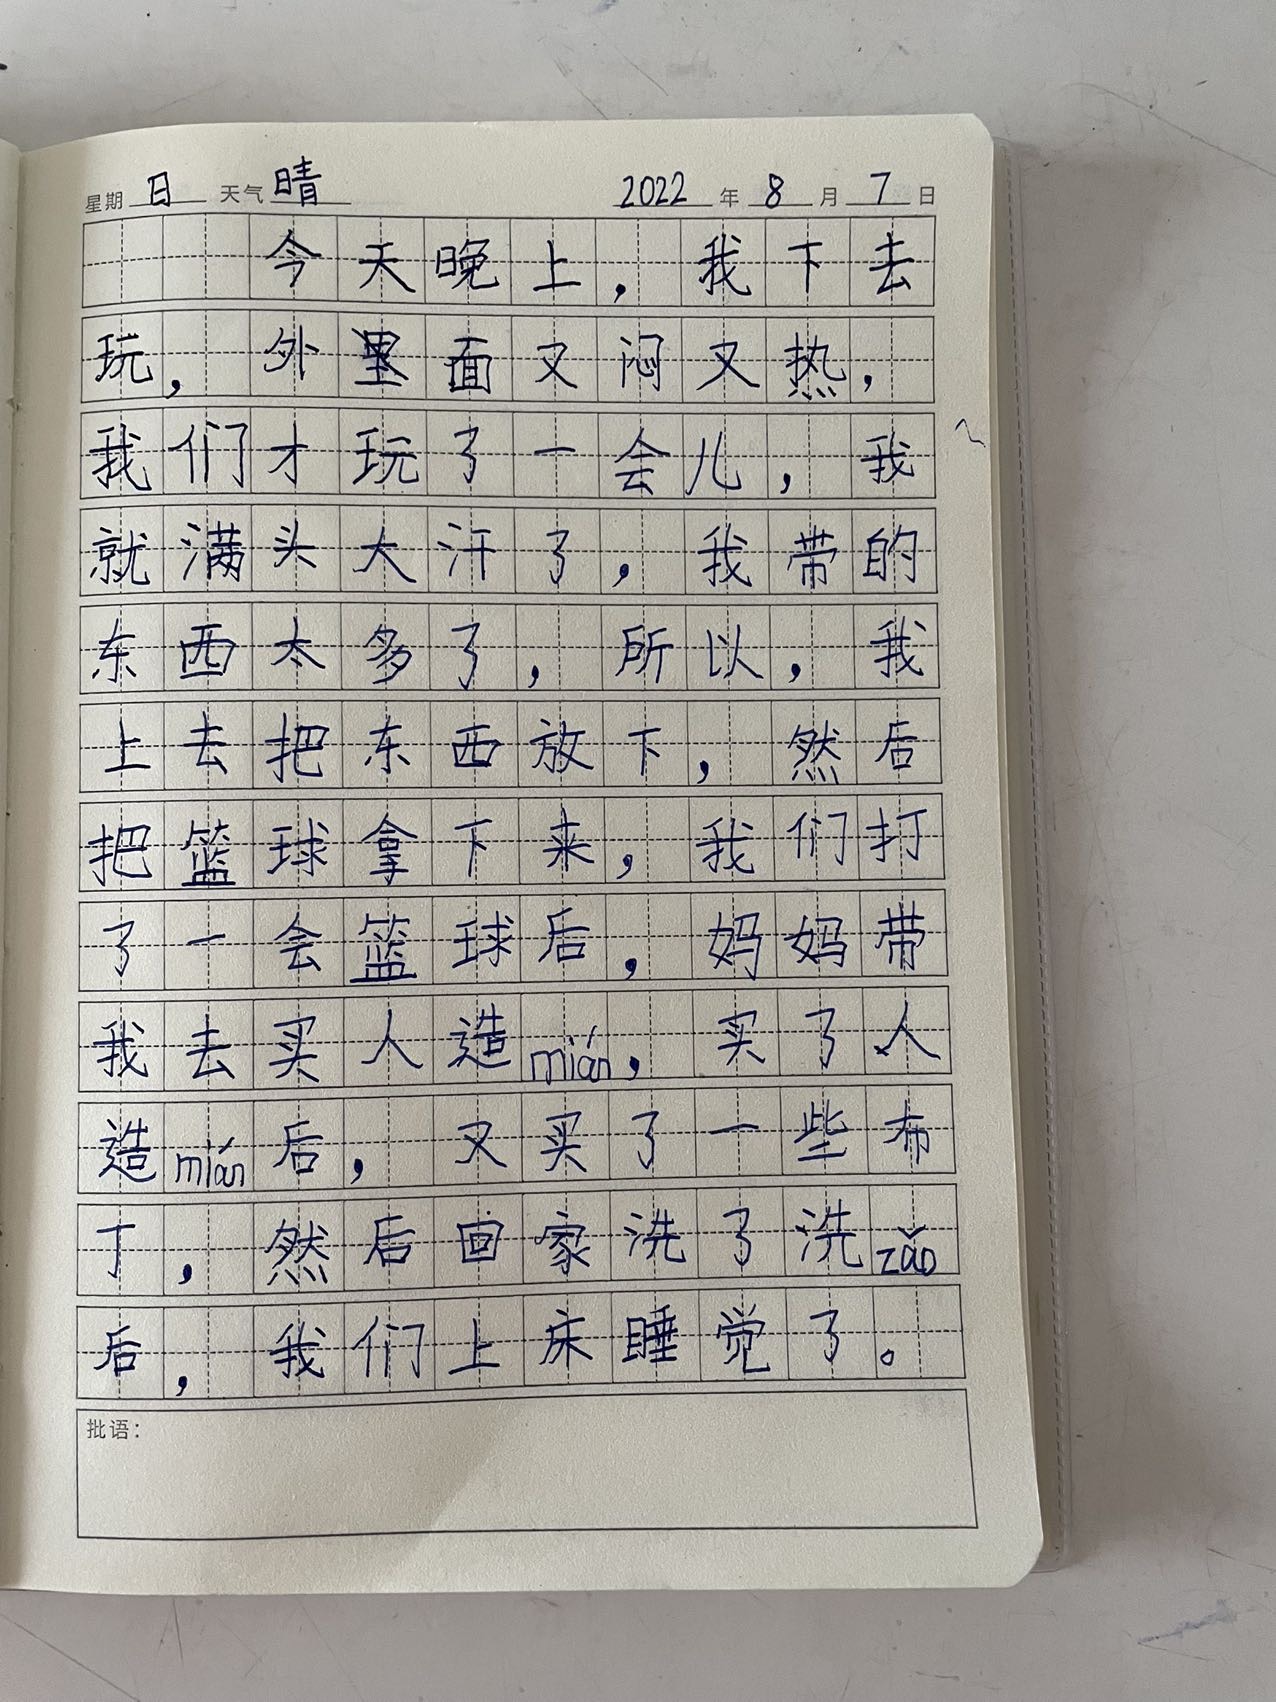 星期 日 天气 晴 2022 年 8 月 7 日
今天晚上，我下去
玩，外面又闷又热，
我们才玩了一会儿，我
就满头大汗了，我带的
东西太多了，所以，我
上去把东西放下，然后
把篮球拿下来，我们打
了一会篮球后，妈妈带
我去买人造mián，买了人
造mián后，又买了一些布
丁，然后回家洗了洗zǎo
后，我们上床睡觉了。
批语：